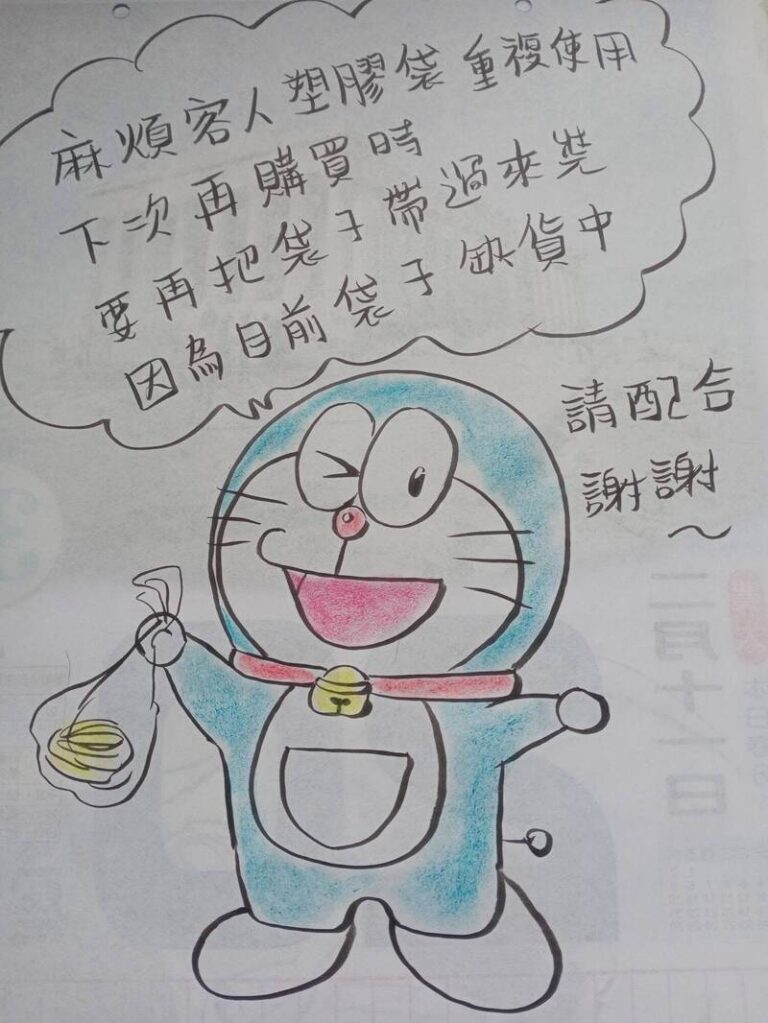 麻煩客人塑膠袋重複使用
下次再購買時
要再把袋子帶過來裝
因為目前袋子缺貨中
請配合
謝謝~
二月十一日